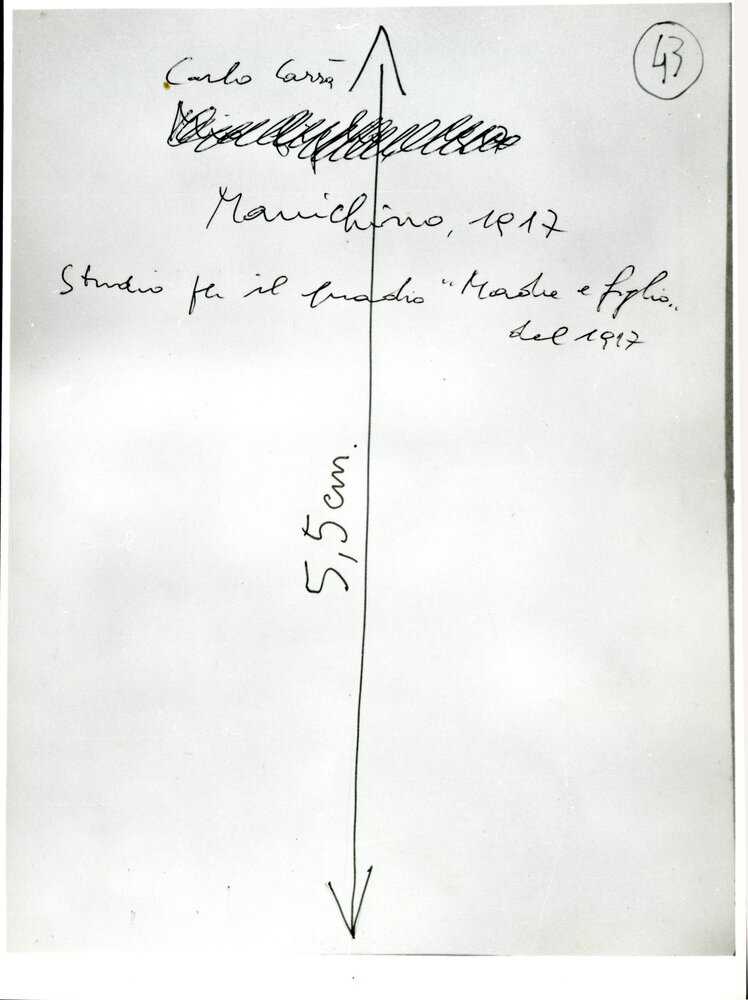 43
Carlo Carrà
Manichino, 1917
Studio per il quadro "Madre e figlio"
del 1917
5,5 cm.